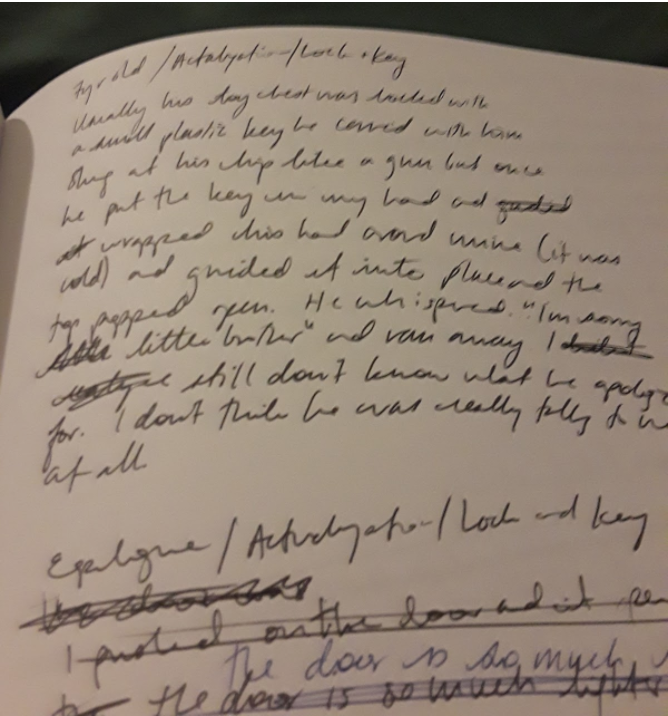 7yr old / Actualization / Lock + Key
Usually his toy chest was locked with
a small plastic key he carried with him
slung at his hip like a gun but once
he put the key in my hand and guided
it wrapped his hand around mine (it was
cold) and guided it into place and the
top popped open. He whispered. "I'm sorry
little brother" and ran away I
still don't know what he apologi
for. I don't think he was really talking to
at all
Epilogue / Actualization / Lock and Key
The door was
I pushed on the door and it
the door is so much
the door is so much lighter